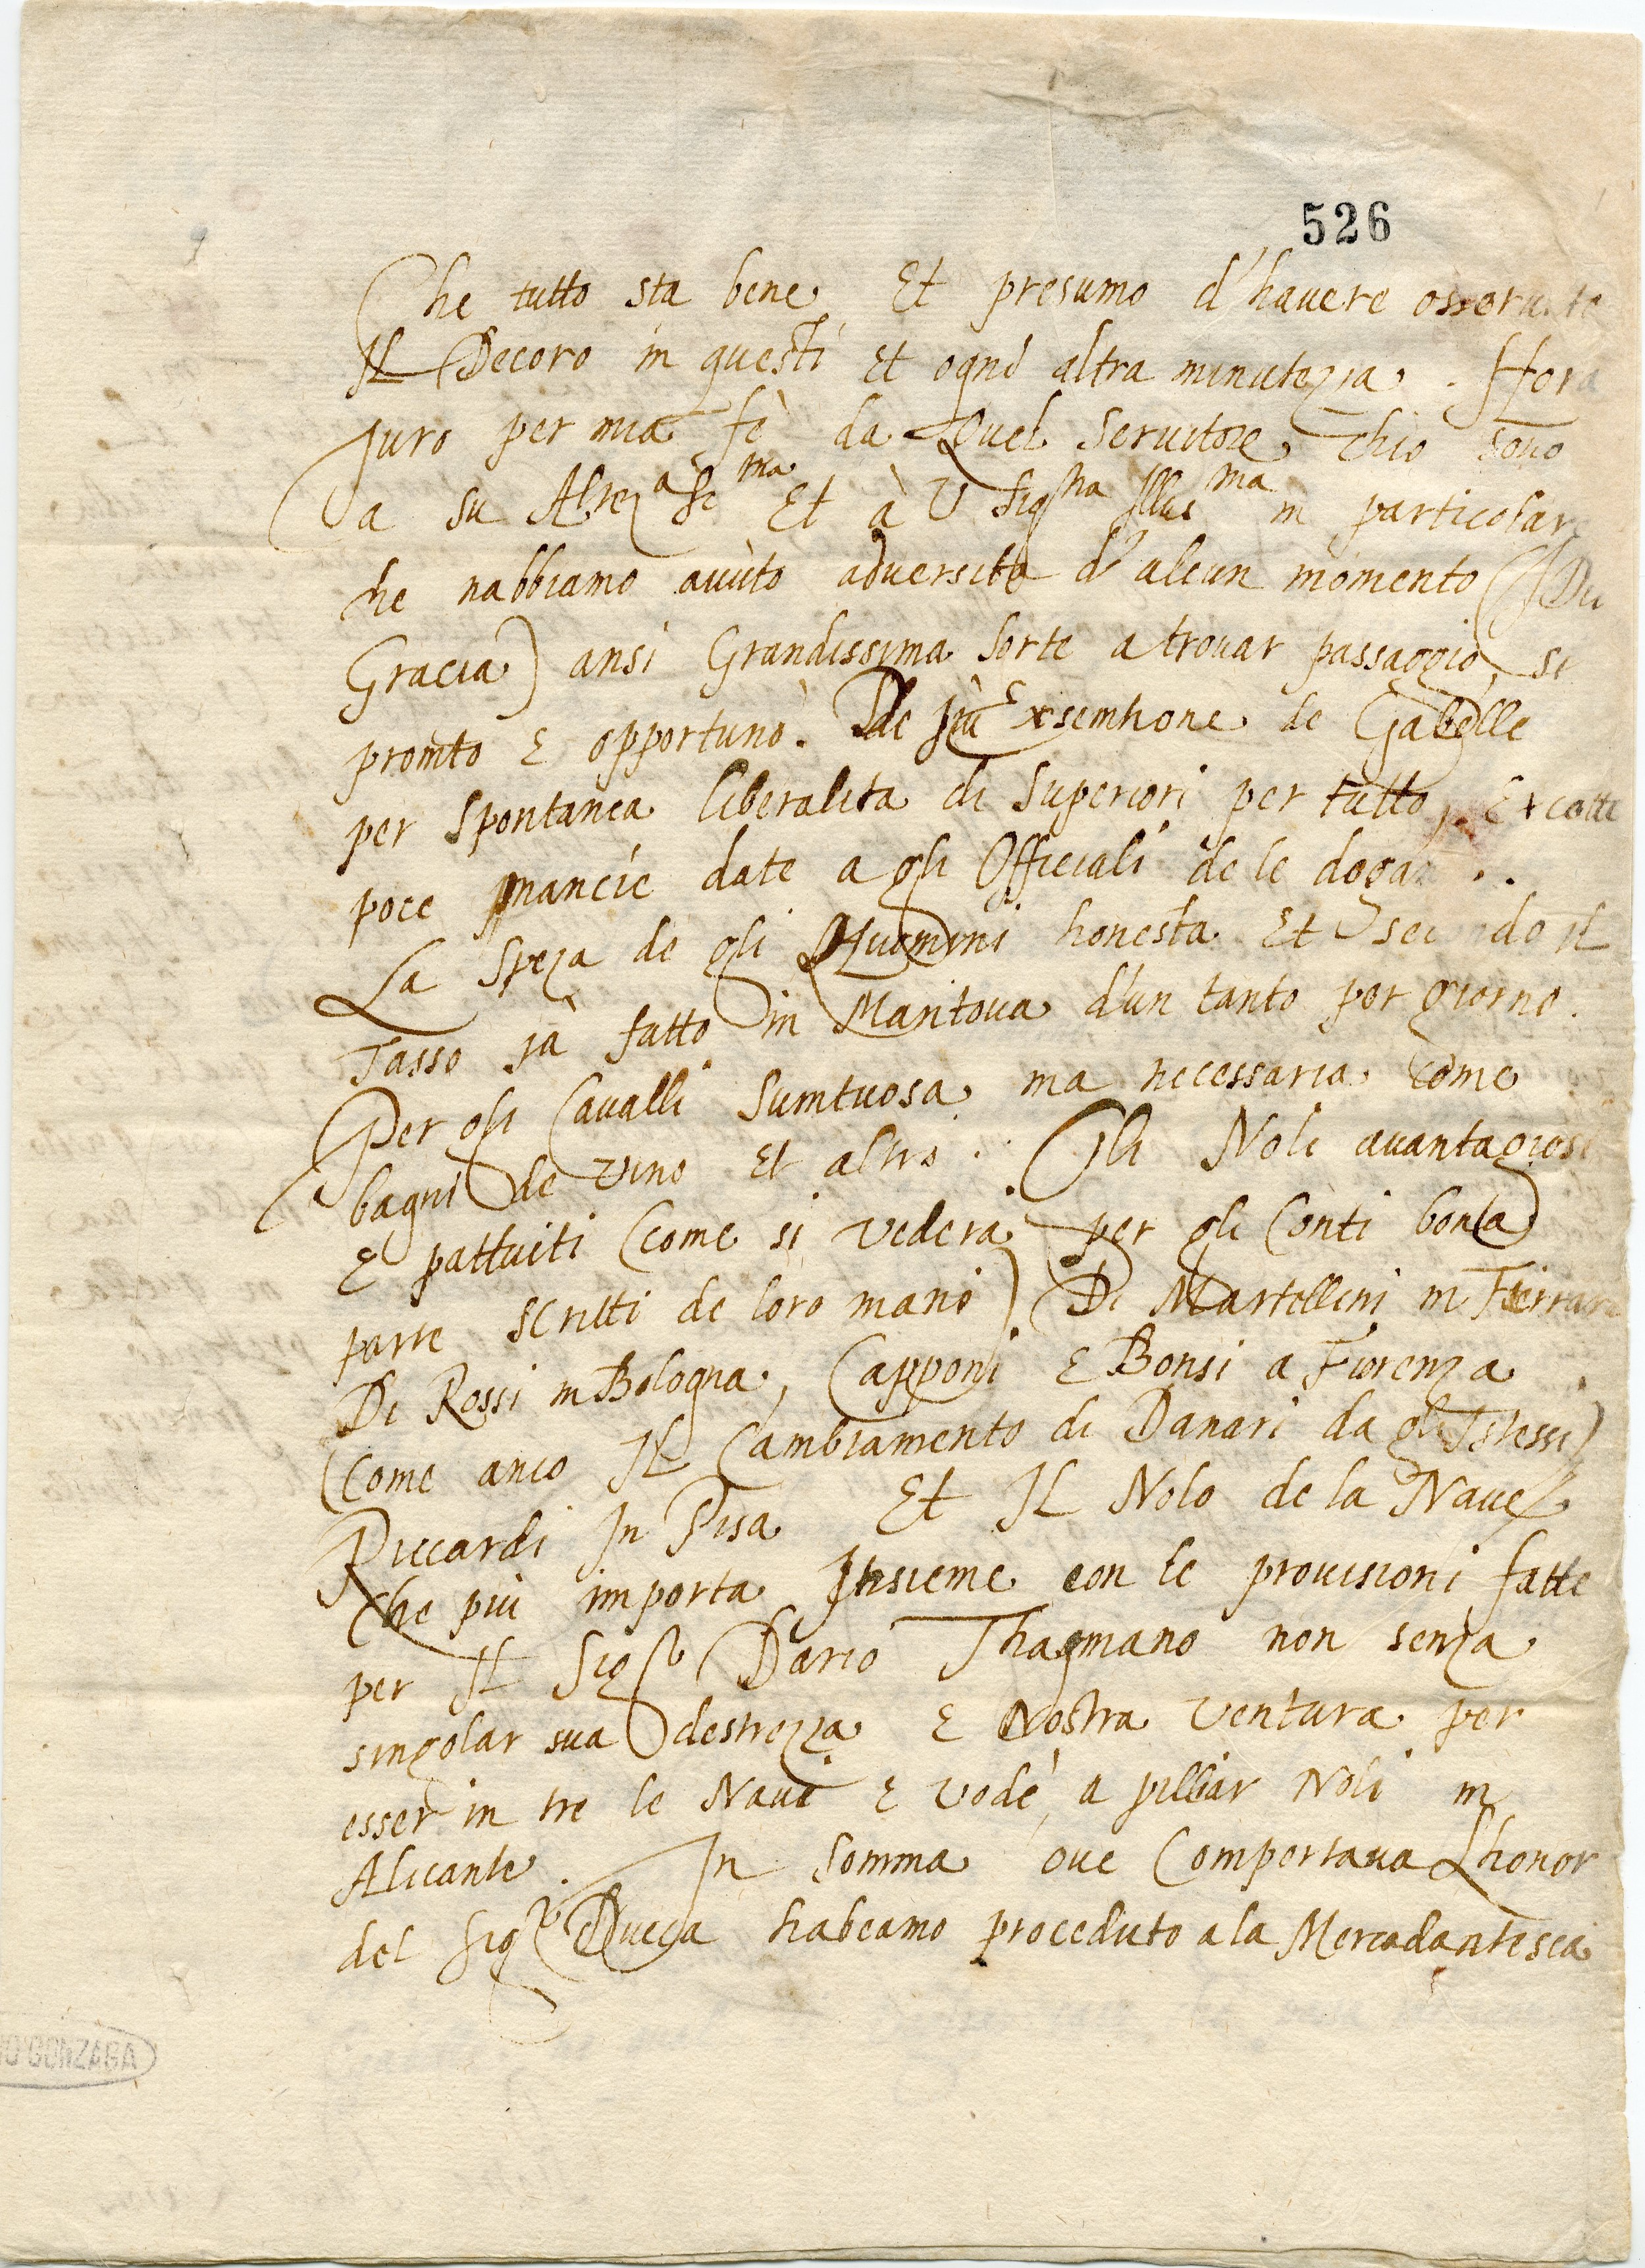 526
Che tutto sta bene Et presumo d'havere osservato
Il Decoro in questi et ogni altra minutezza. Hora
juro per mia fe da quel servitore ch'io sono
a su Altez.a Se.ma Et à V Sig.ria Illus.ma in particolar
che n'abbiamo avùto adversita d'alcun momento (Di
Gracia) ansi Grandissima sorte a trovar passaggio si
promto e opportuno. De più Exsemtione de Gabelle
per spontanea liberalita di Superiori per tutto, Excetti
poce mancie date a gli Officiali de le dogan
La speza de gli Huomini honesta Et secondo il
Tasso ja fatto in Mantova d'un tanto per giorno.
Per gli Cavalli Sumtuosa ma necessaria come
bagni de vino et altro. Gli Noli avantagiosi
e pattuiti (come si vedera per gli Conti bonla
parte scritti de loro mano) Di Martellini in Ferrara
Di Rossi in Bologna, Capponi e Bonsi a Fiorenza
(Come anco Il Cambiamento di Danari da gl'Istessi)
Riccardi In Pisa Et Il Nolo de la Nave
Che più importa Insieme con le provisioni fatte
per Il Sig.r Dario Thagmano non senza
singolar sua destrezza e Nostra ventura per
esser in tre le Navi e vode a pilliar Noli in
Alicante. In somma ove Comportava L'honor
del Sig.r Ducca habeamo proceduto a la Mercadantesca
O GONZAGA